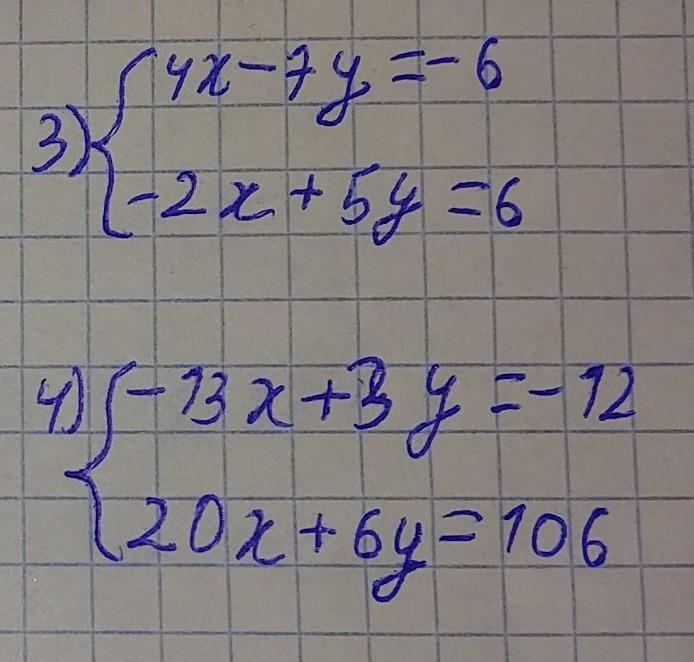 3) { 4x-7y=-6
-2x+5y=6
4) { -13x+3y=-12
20x+6y=106